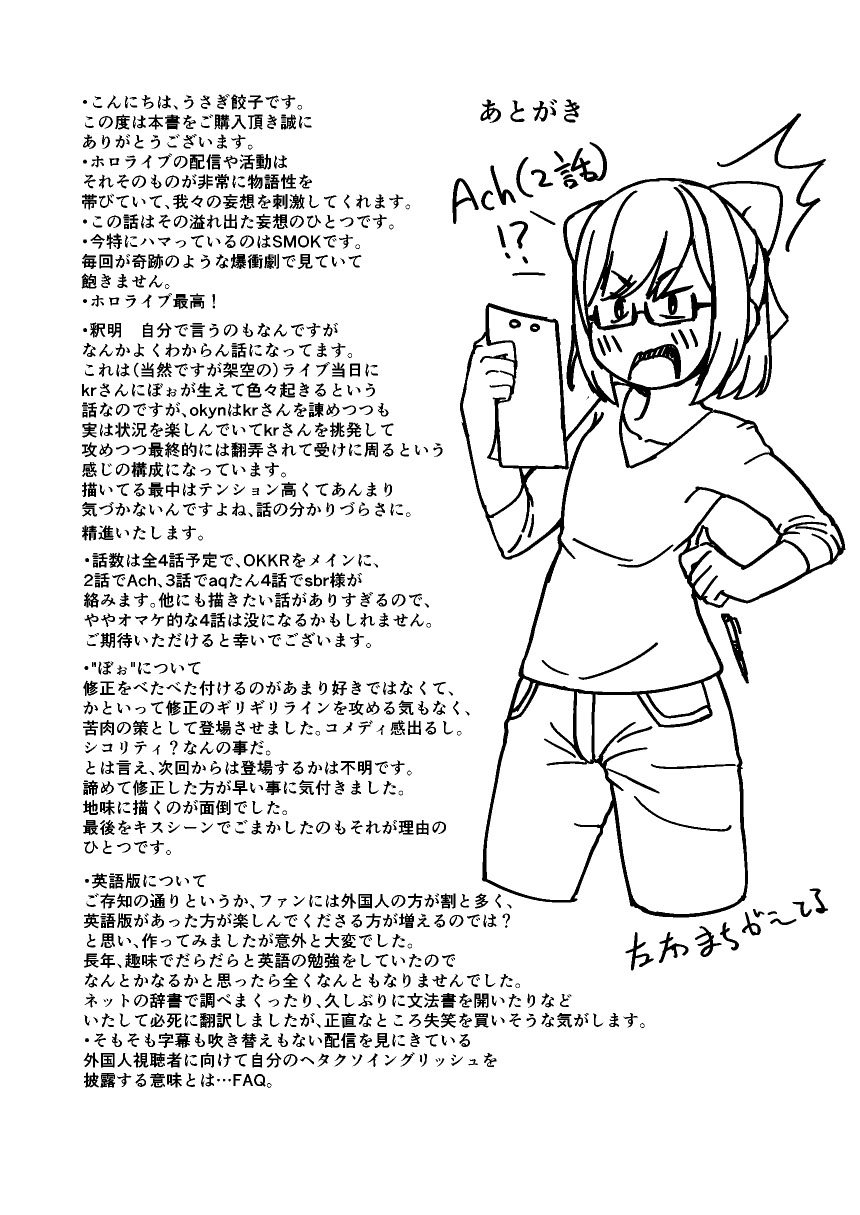 あとがき
・こんにちは、うさぎ餃子です。
この度は本書をご購入頂き誠に
ありがとうございます。
・ホロライブの配信や活動は
それそのものが非常に物語性を
帯びていて、我々の妄想を刺激してくれます。
・この話はその溢れ出た妄想のひとつです。
・今特にハマっているのはSMOKです。
毎回が奇跡のような爆衝劇で見ていて
飽きません。
・ホロライブ最高！
・釈明　自分で言うのもなんですが
なんかよくわからん話になってます。
これは(当然ですが架空の)ライブ当日に
krさんにぼぉが生えて色々起きるという
話なのですが、okynはkrさんを諌めつつも
実は状況を楽しんでいてkrさんを挑発して
攻めつつ最終的には翻弄されて受けに周るという
感じの構成になっています。
描いてる最中はテンション高くてあんまり
気づかないんですよね、話の分かりづらさに。
精進いたします。
・話数は全4話予定で、OKKRをメインに、
2話でAch、3話でaqたん4話でsbr様が
絡みます。他にも描きたい話がありすぎるので、
ややオマケ的な4話は没になるかもしれません。
ご期待いただけると幸いでございます。
・"ぼぉ"について
修正をべたべた付けるのがあまり好きではなくて、
かといって修正のギリギリラインを攻める気もなく、
苦肉の策として登場させました。コメディ感出るし。
シコリティ？なんの事だ。
とは言え、次回からは登場するかは不明です。
諦めて修正した方が早い事に気付きました。
地味に描くのが面倒でした。
最後をキスシーンでごまかしたのもそれが理由の
ひとつです。
・英語版について
ご存知の通りというか、ファンには外国人の方が割と多く、
英語版があった方が楽しんでくださる方が増えるのでは？
と思い、作ってみましたが意外と大変でした。
長年、趣味でだらだらと英語の勉強をしていたので
なんとかなるかと思ったら全くなんともなりませんでした。
ネットの辞書で調べまくったり、久しぶりに文法書を開いたりなど
いたして必死に翻訳しましたが、正直なところ失笑を買いそうな気がします。
・そもそも字幕も吹き替えもない配信を見にきている
外国人視聴者に向けて自分のヘタクソイングリッシュを
披露する意味とは…FAQ。
Ach(2話)
!?
左右まちがえてる